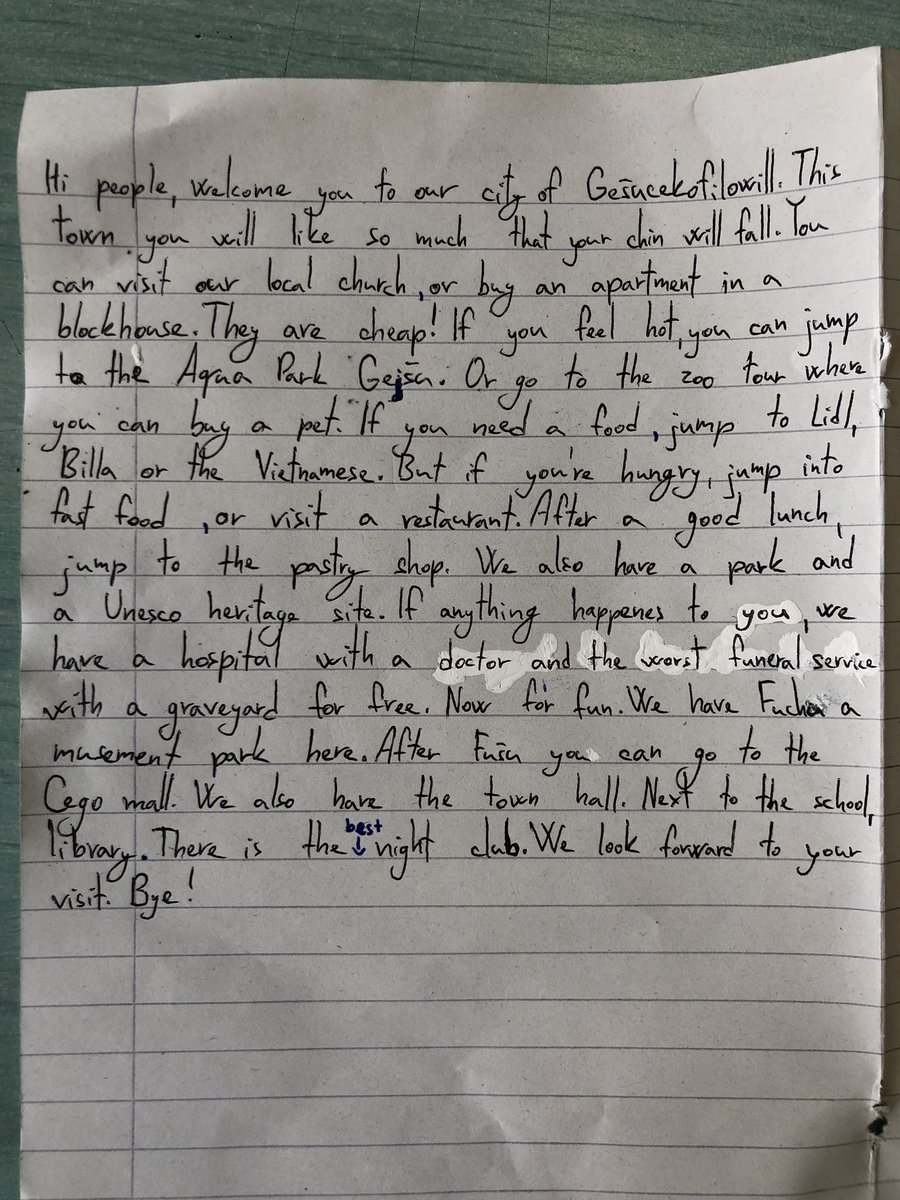 Hi people, welcome you to our city of Gešucekofilowill. This
town you will like so much that your chin will fall. You
can visit our local church, or buy an apartment in a
blockhouse. They are cheap! If you feel hot, you can jump
to the Aqua Park Gejšu. Or go to the zoo tour where
you can buy a pet. If you need a food, jump to Lidl,
Billa or the Vietnamese. But if you're hungry, jump into
fast food, or visit a restaurant. After a good lunch,
jump to the pastry shop. We also have a park and
a Unesco heritage site. If anything happenes to you, we
have a hospital with a doctor and the worst funeral service
with a graveyard for free. Now for fun. We have Fucha a
musement park here. After Fušu you can go to the
Cego mall. We also have the town hall. Next to the school,
library. There is the best night club. We look forward to your
visit. Bye!